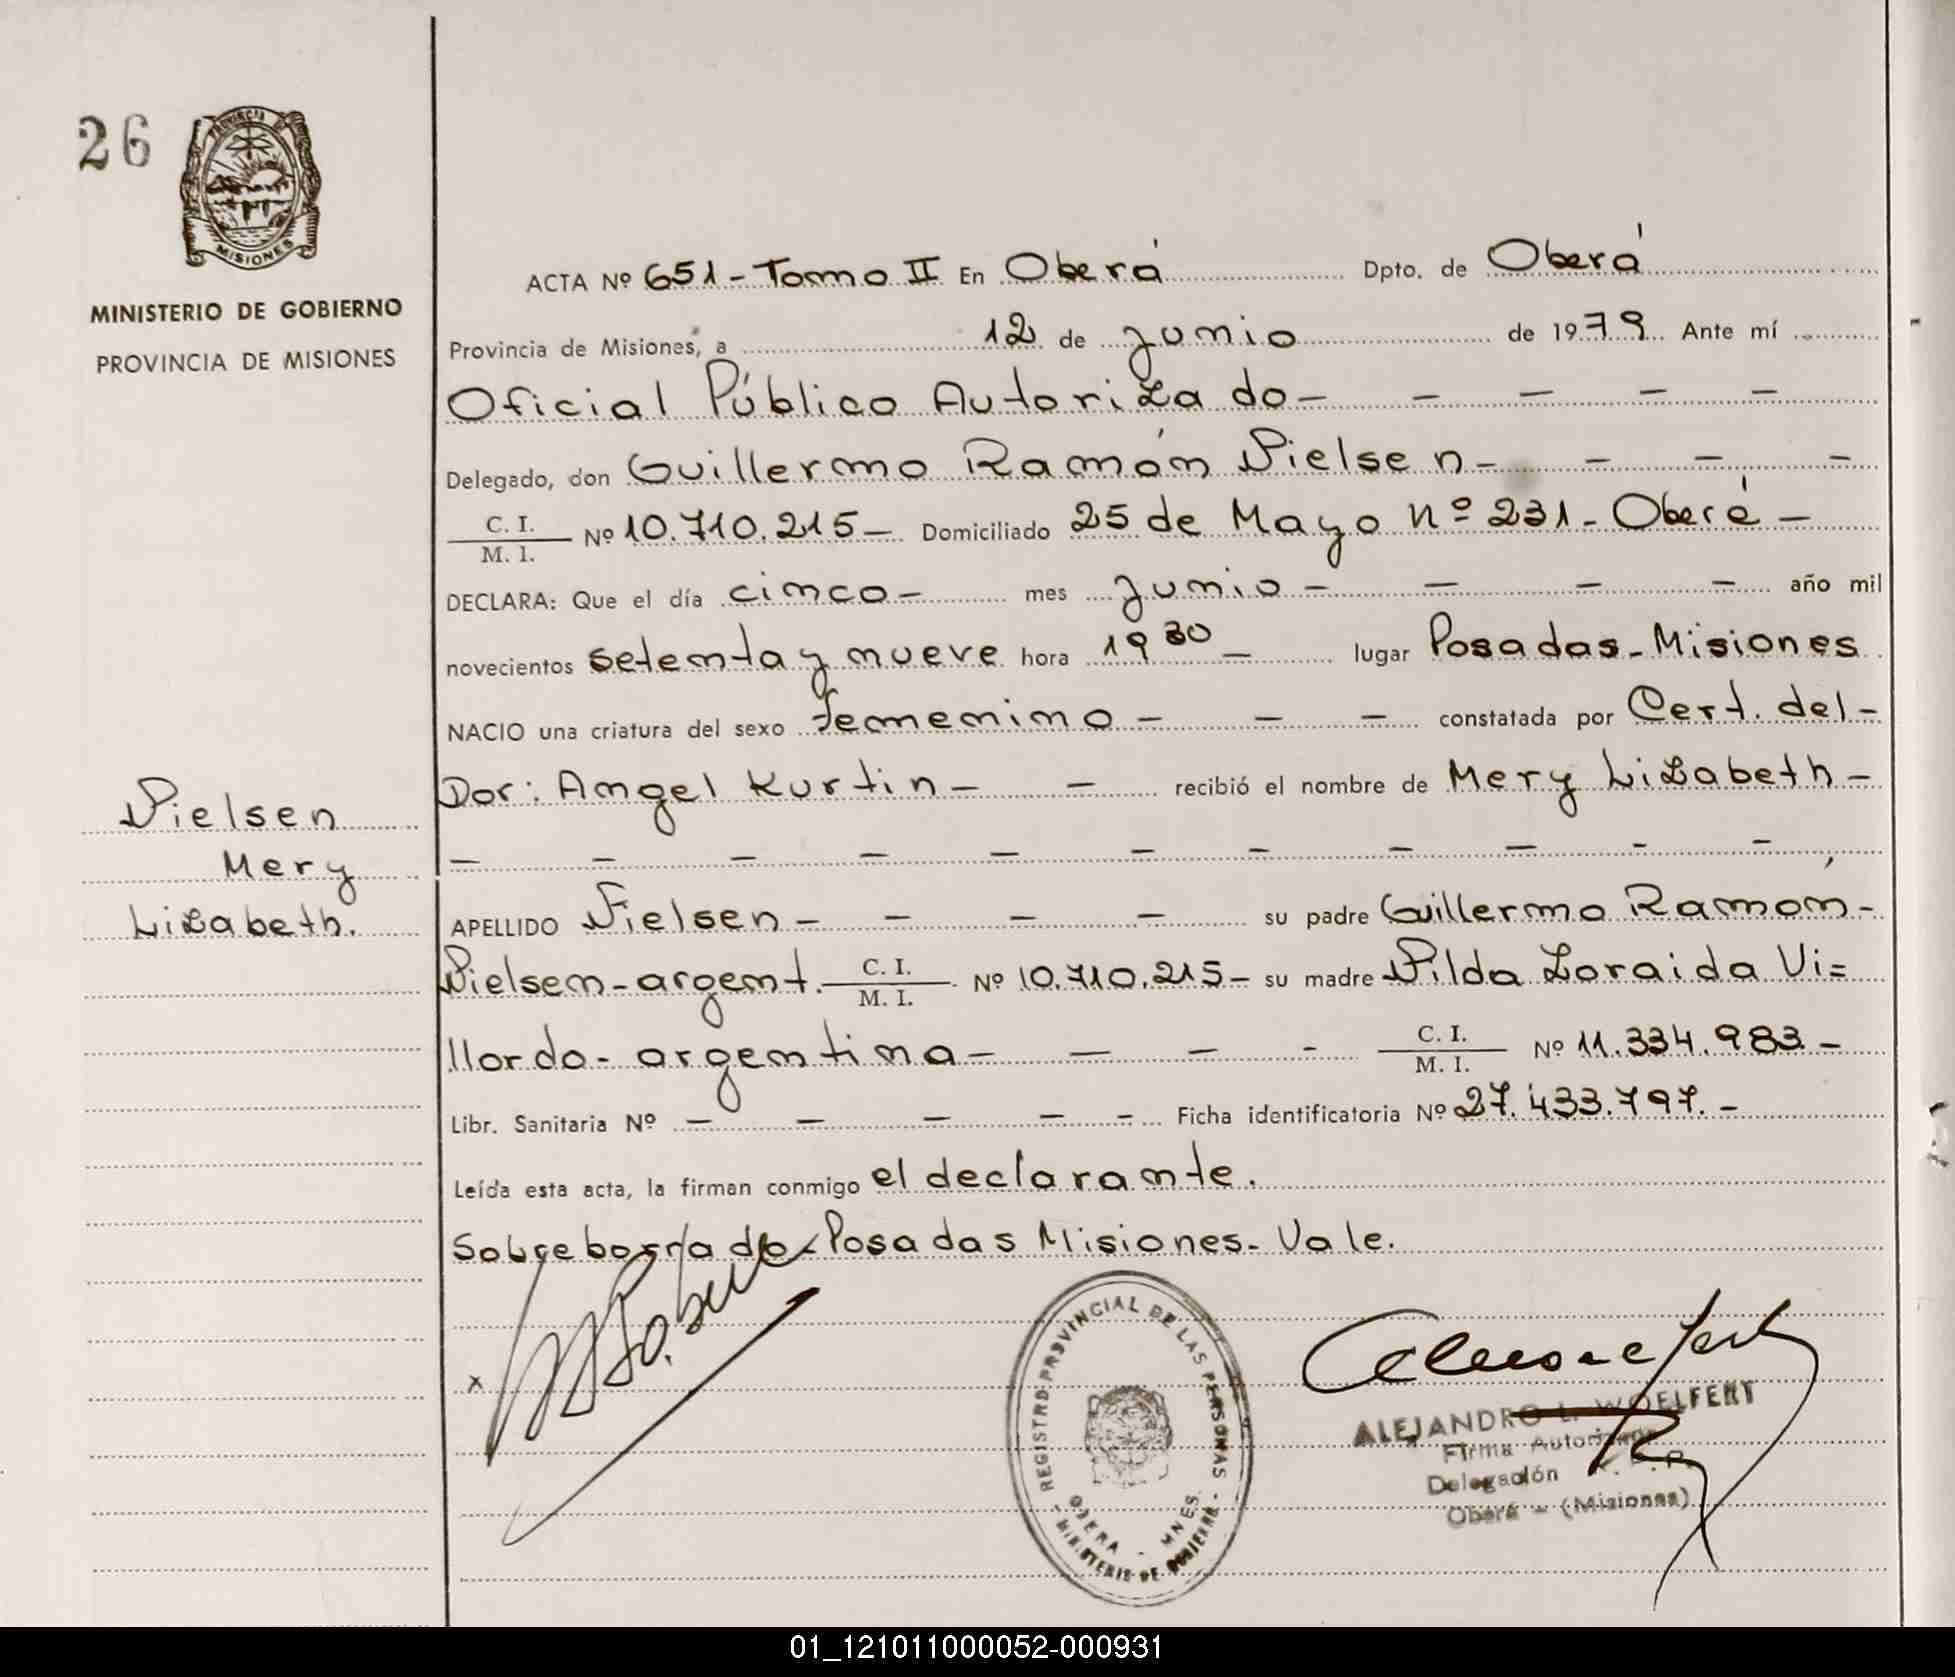 26
PROVINCIA DE
MISIONES
MINISTERIO DE GOBIERNO
PROVINCIA DE MISIONES
ACTA Nº 651 - Tomo II En Oberá Dpto. de Oberá
Provincia de Misiones, a 12 de junio de 1979 Ante mí
Oficial Público Autorizado - - - - -
Delegado, don Guillermo Ramón Nielsen - - - -
C. I. / M. I. Nº 10.710.215 - Domiciliado 25 de Mayo nº 231 - Oberá -
DECLARA: Que el día cinco - mes junio - - - - año mil
novecientos setenta y nueve hora 19 30 - lugar Posadas - Misiones
NACIO una criatura del sexo femenino - - - constatada por Cert. del -
Dor: Angel Kurtin - - recibió el nombre de Mery Lizabeth -
- - - - - - - - - - -
Nielsen
Mery
Lizabeth.
APELLIDO Nielsen - - - - su padre Guillermo Ramón -
Nielsen - argent. C. I. / M. I. Nº 10.710.215 - su madre Nilda Zoraida Vi=
llordo - argentina - - - - C. I. / M. I. Nº 11.334.983. -
Libr. Sanitaria Nº - - - - - Ficha identificatoria Nº 27.433.797. -
Leída esta acta, la firman conmigo el declarante.
Sobreborrado - Posadas Misiones - Vale.
x
REGISTRO PROVINCIAL DE LAS PERSONAS
OBERA - MNES.
- MINISTERIO DE GOBIERNO -
ALEJANDRO L. WOELFERT
Firma Autorizada
Delegación R. P. P.
Oberá - (Misiones)
01_121011000052-000931